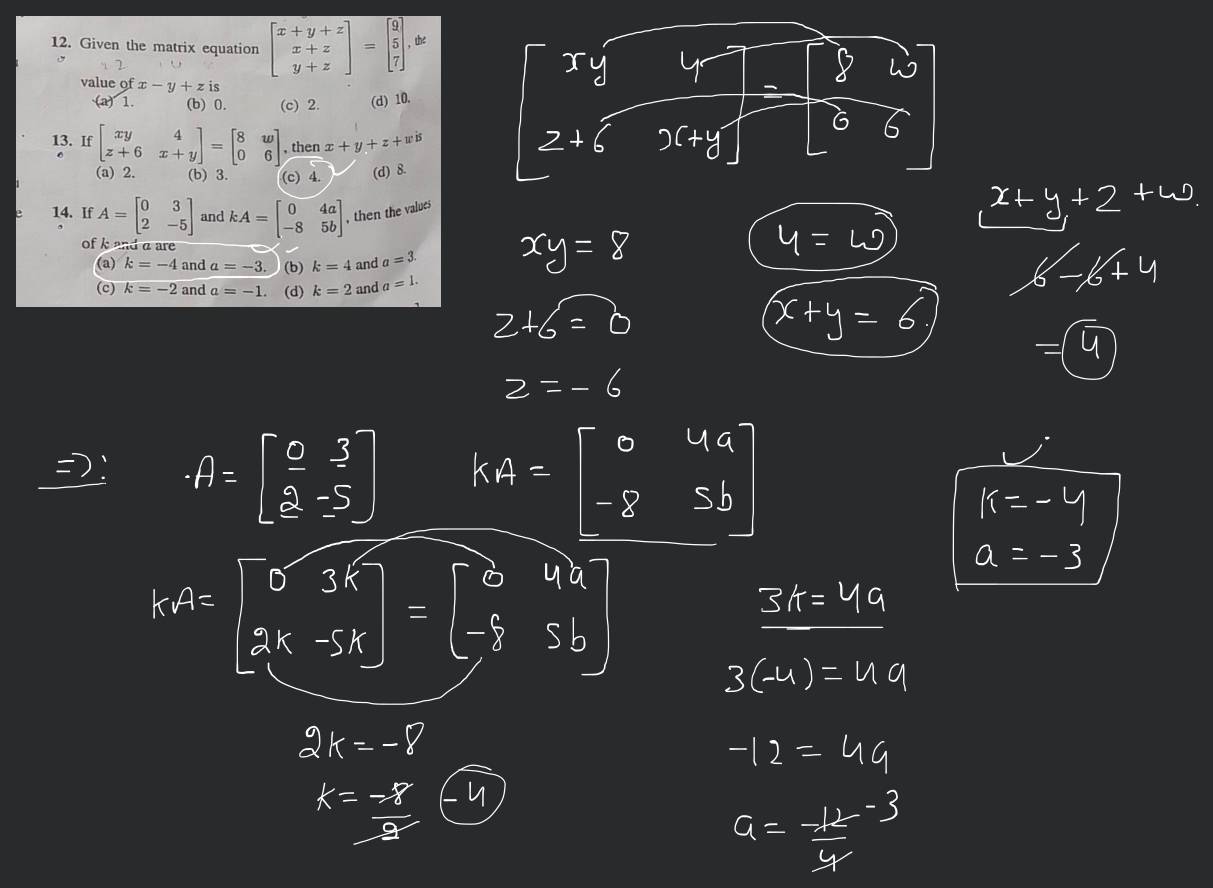 12. Given the matrix equation [x + y + z x + z y + z] = [9 5 7], the
value of x − y + z is
(a) 1. (b) 0. (c) 2. (d) 10.
13. If [xy 4 z + 6 x + y] = [8 w 0 6], then x + y + z + w is
(a) 2. (b) 3. (c) 4. (d) 8.
14. If A = [0 3 2 −5] and kA = [0 4a −8 5b], then the values
of k and a are
(a) k = −4 and a = −3. (b) k = 4 and a = 3.
(c) k = −2 and a = −1. (d) k = 2 and a = 1.
[xy 4] = [8 w]
[z+6 x+y] [0 6]
xy = 8
z+6 = 0
z = -6
4 = w
x+y = 6
x+y+z+w.
6-6+4
= 4
=>: A = [0 3] kA = [0 4a]
[2 -5] [-8 5b]
kA = [0 3k] = [0 4a]
[2k -5k] [-8 5b]
2k = -8
k = -8/2 -4
3k = 4a
3(-4) = 4a
-12 = 4a
a = -12/4 -3
k = -4
a = -3